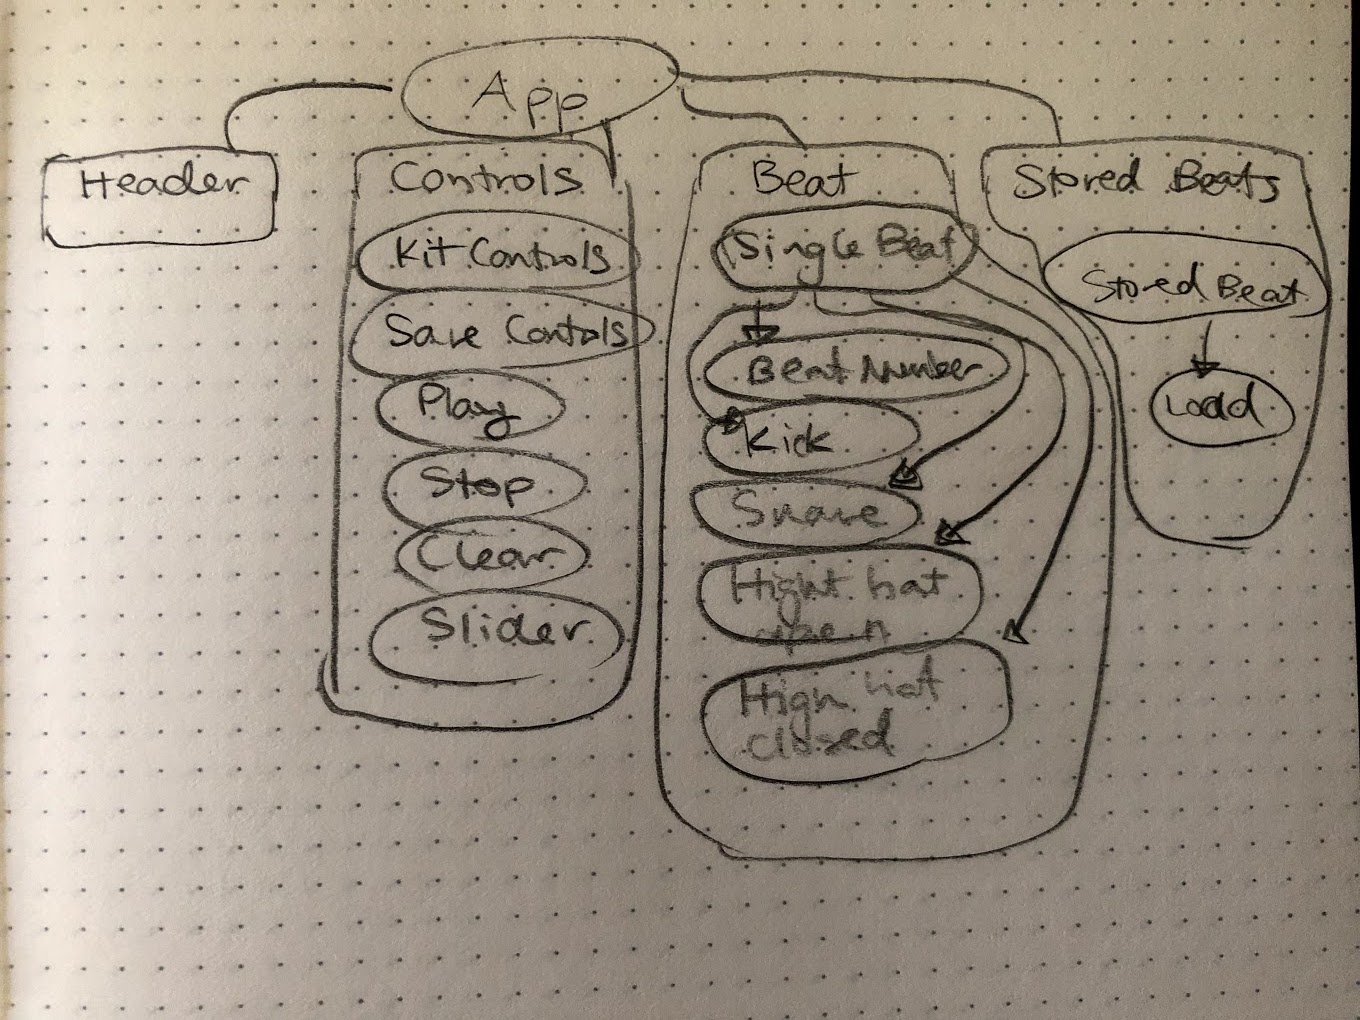 App
Header
Controls
Kit Controls
Save Controls
Play
Stop
Clear
Slider
Beat
Single Beat
Beat Number
Kick
Snare
Hight hat
open
High hat
closed
Stored Beats
Stored Beat
Load